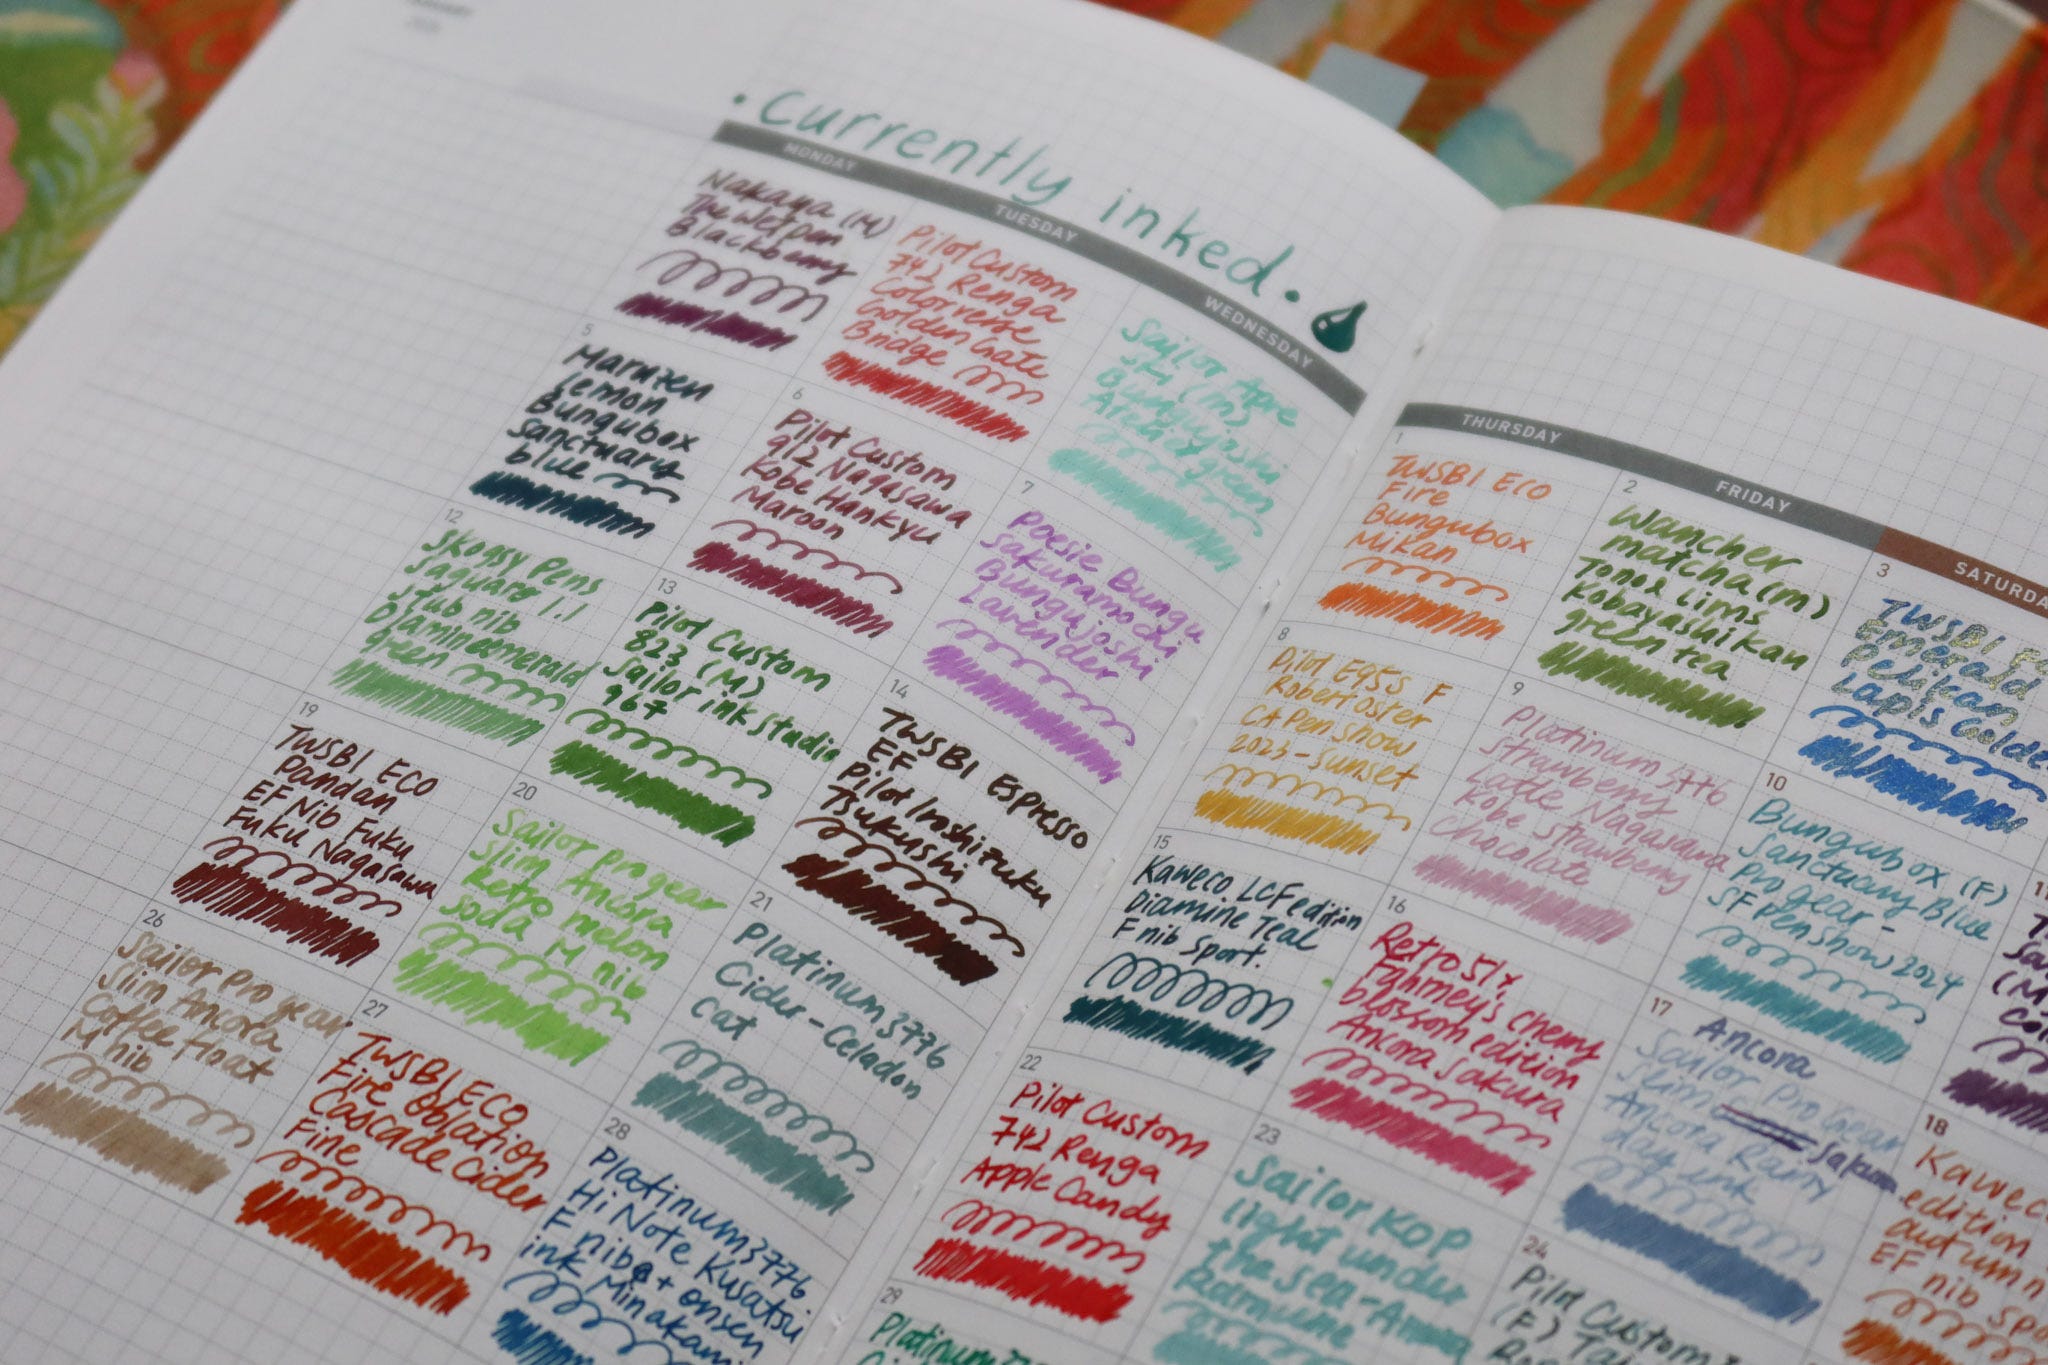 • Currently inked •
MONDAY
TUESDAY
WEDNESDAY
THURSDAY
FRIDAY
SATURDA
Nakaya (M)
The Wet pen
Blackberry
Pilot Custom
742 Renga
Colorverse
Golden Gate
Bridge
Sailor Apre
Ski (m)
Bungujoshi
Arctic green
1
TWSBI ECO
Fire
Bungubox
Mikan
2
Wancher
matcha (m)
Tono & Lims
Kobayashi Kan
green tea
3
TWSBI
Emerald
Pelikan
Lapis Golde
5
Maruzen
Lemon
Bungubox
Sanctuary
blue
6
Pilot Custom
912 Nagasawa
Kobe Hankyu
Maroon
7
Poesie Bungu
Sakuramochi
Bungujoshi
Lavender
8
Pilot E95s F
Robert Oster
CA Pen show
2023 - Sunset
9
Platinum 3776
Strawberry
Latte Nagasawa
Kobe strawberry
chocolate
10
Bungubox (F)
Sanctuary Blue
Pro gear -
SF Pen show 2024
11
(M
12
Skogsy Pens
Jaguare 1.1
stub nib
Diamine emerald
green
13
Pilot Custom
823 (M)
Sailor ink studio
967
14
TWSBI Espresso
EF
Pilot Iroshizuku
Tsukushi
15
Kaweco LCF edition
Diamine Teal
F nib Sport.
16
Retro 51 x
Fahrney's cherry
blossom edition
Ancora Sakura
17
Ancora
Sailor Pro Gear
Slim
Sakura
Ancora Rainy
day ink
18
Kaweco
edition
autumn
EF nib Spo
19
TWSBI ECO
Pandan
EF Nib Fuku
Fuku Nagasawa
20
Sailor Pro gear
Slim Ancora
Retro melon
soda M nib
21
Platinum 3776
Cider - Celadon
cat
22
Pilot Custom
742 Renga
Apple Candy
23
Sailor KOP
light under
the sea - Ancora
Ramune
24
Pilot Custom
(F)
26
Sailor Pro gear
Slim Ancora
Coffee Float
M nib
27
TWSBI ECO
Fire Oblation
Cascade Cider
Fine
28
Platinum 3776
Hi Note Kusatsu
F nib + onsen
ink Minakami
29
Platinum